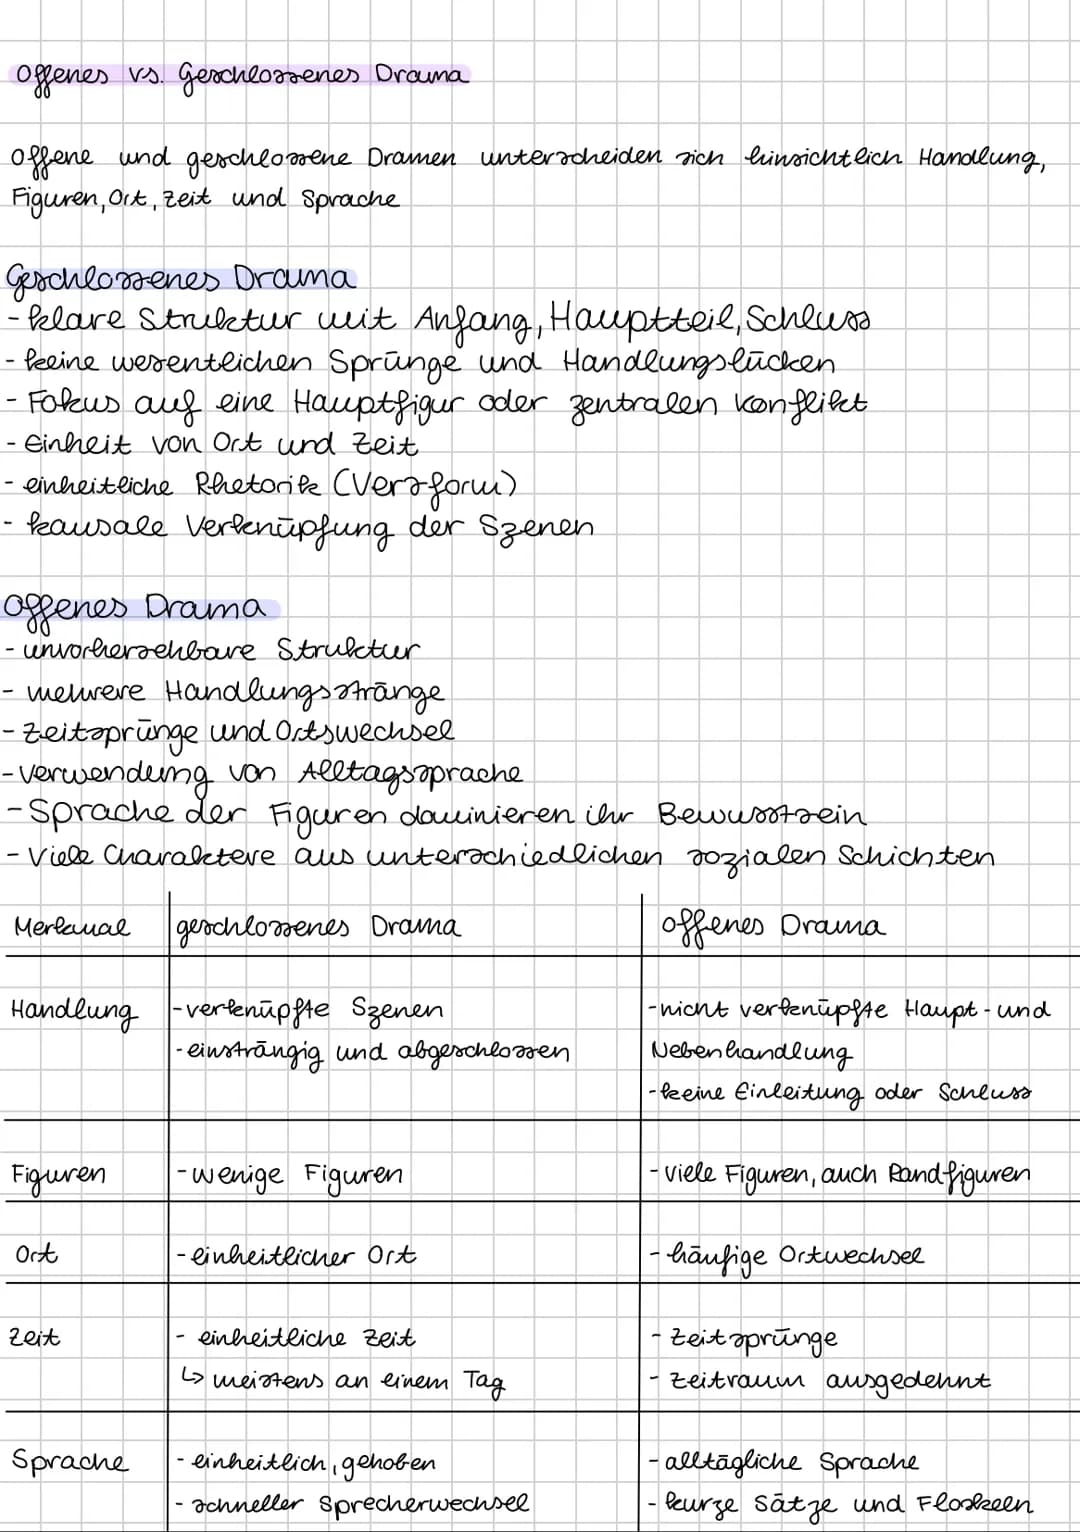 Offenes vs. Geschlossenes Drama
Offene und geschlossene Dramen unterscheiden sich hinsichtlich Handlung,
Figuren, Ort, Zeit und Sprache
Geschlossenes Drama
- klare Struktur mit Anfang, Hauptteil, Schluss
- keine wesentlichen Sprünge und Handlungslücken
- Fokus auf eine Hauptfigur oder zentralen Konflikt
- Einheit von Ort und Zeit
- einheitliche Rhetorik (Versform)
- kausale Verknüpfung der Szenen
Offenes Drama
- unvorhersehbare Struktur
- mehrere Handlungsstränge
- Zeitsprünge und Ortswechsel
- Verwendung von Alltagssprache
- Sprache der Figuren dominieren ihr Bewusstsein
- Viele Charaktere aus unterschiedlichen sozialen Schichten
Merkmal geschlossenes Drama offenes Drama
Handlung - verknüpfte Szenen - nicht verknüpfte Haupt- und
- einsträngig und abgeschlossen Nebenhandlung
- keine Einleitung oder Schluss
Figuren - wenige Figuren - viele Figuren, auch Randfiguren
Ort - einheitlicher Ort - häufige Ortwechsel
Zeit - einheitliche Zeit - Zeitsprünge
↳ meistens an einem Tag - Zeitraum ausgedehnt
Sprache - einheitlich, gehoben - alltägliche Sprache
- schneller Sprecherwechsel - kurze Sätze und Floskeln